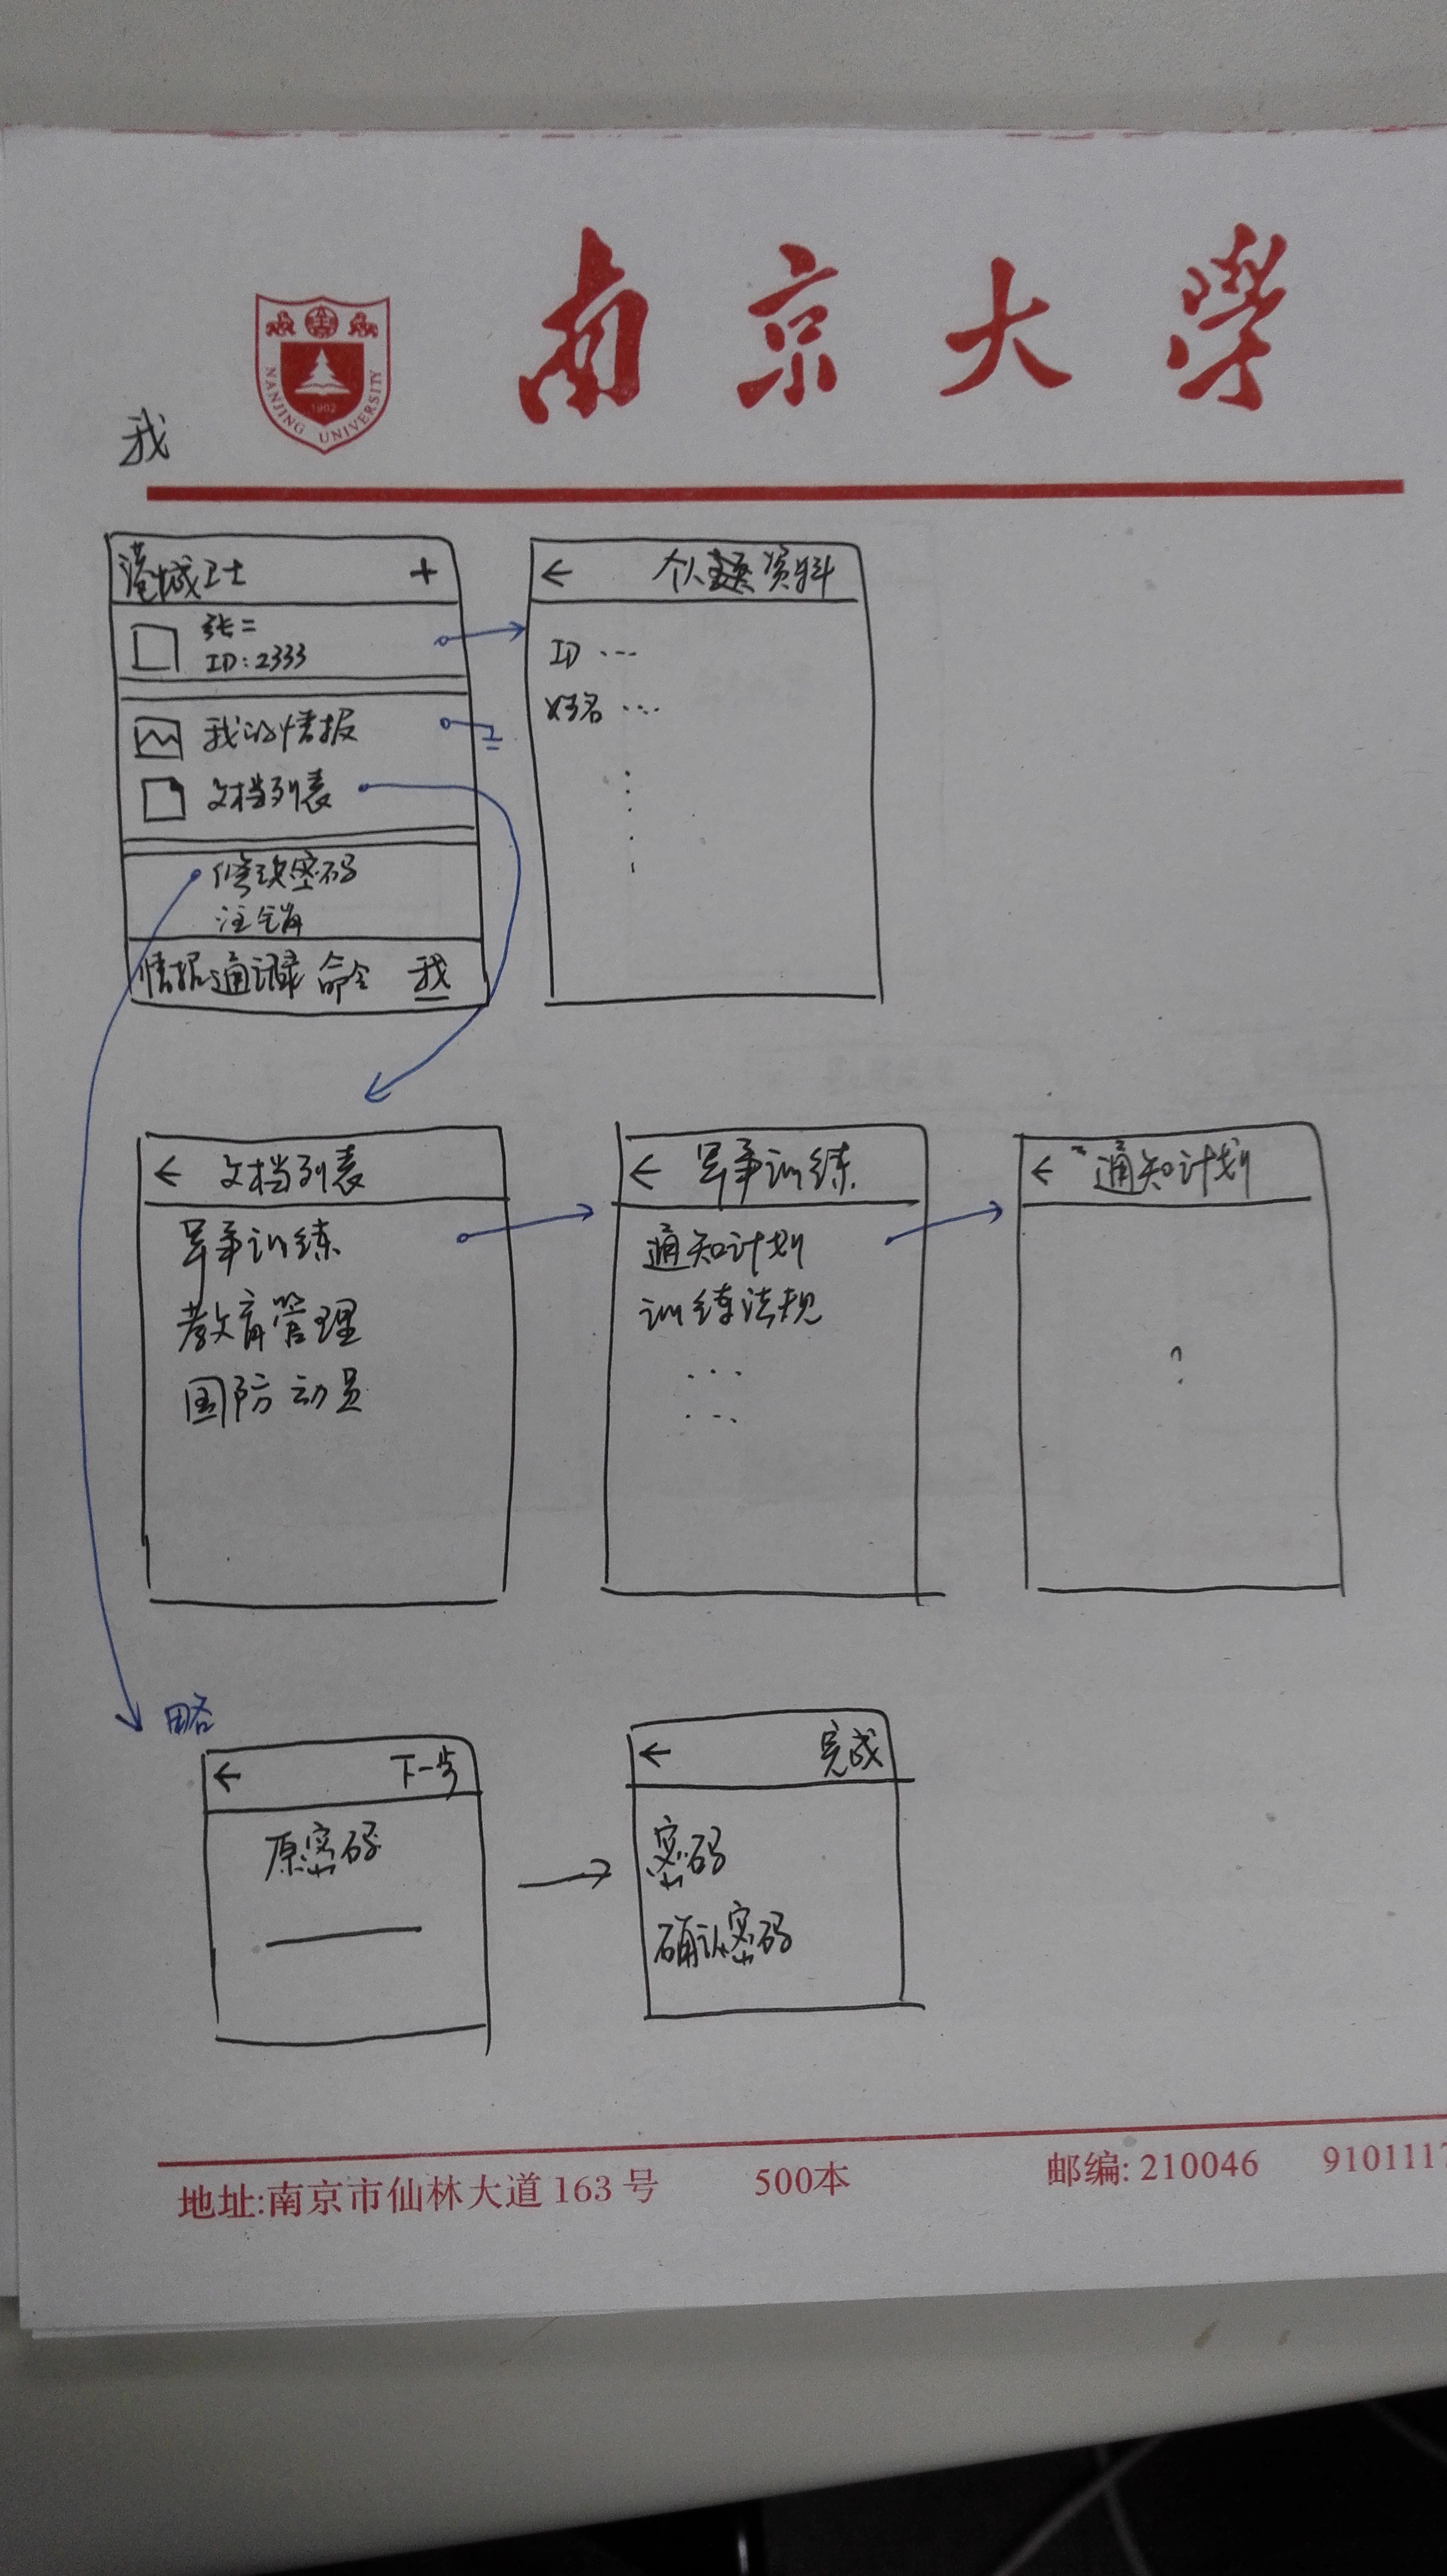 南京大学
NANJING UNIVERSITY
1902
我
港城卫士 +
张二
ID:2333
我的情报
文档列表
修改密码
注销
情报 通讯录 命令 我
← 个人资料
ID ...
姓名 ...
← 文档列表
军事训练
教育管理
国防动员
← 军事训练
通知计划
训练法规
...
...
← 通知计划
?
略
← 下一步
原密码
← 完成
密码
确认密码
地址:南京市仙林大道163号 500本 邮编: 210046 9101117